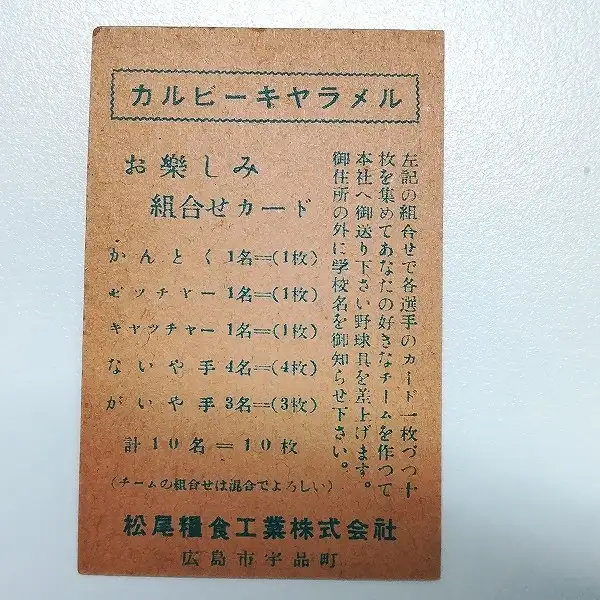 カルビーキヤラメル
お樂しみ
組合せカード
左記の組合せで各選手のカード一枚づつ十
枚を集めてあなたの好きなチームを作つて
本社へ御送り下さい野球具を差上げます。
御住所の外に学校名を御知らせ下さい。
かんとく 1名=(1枚)
ピッチャー 1名=(1枚)
キャッチャー 1名=(1枚)
ないや手 4名=(4枚)
がいや手 3名=(3枚)
計10名=10枚
(チームの組合せは混合でよろしい)
松尾糧食工業株式会社
広島市宇品町